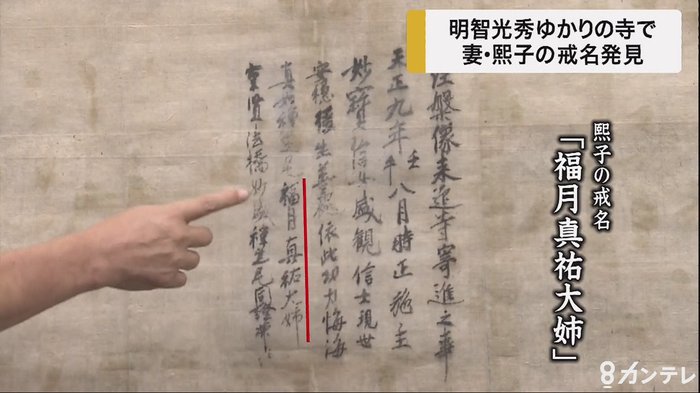 明智光秀ゆかりの寺で
妻・熙子の戒名発見
熙子の戒名
「福月真祐大姉」
槃像来迎寺寄進之事
天正九年壬午八月時正施主
妙寶 盛観信士現世
安穏後生善 依此功力 海
真如 福月真祐大姉
宗賢法橋妙 禅定尼同證
8カンテレ